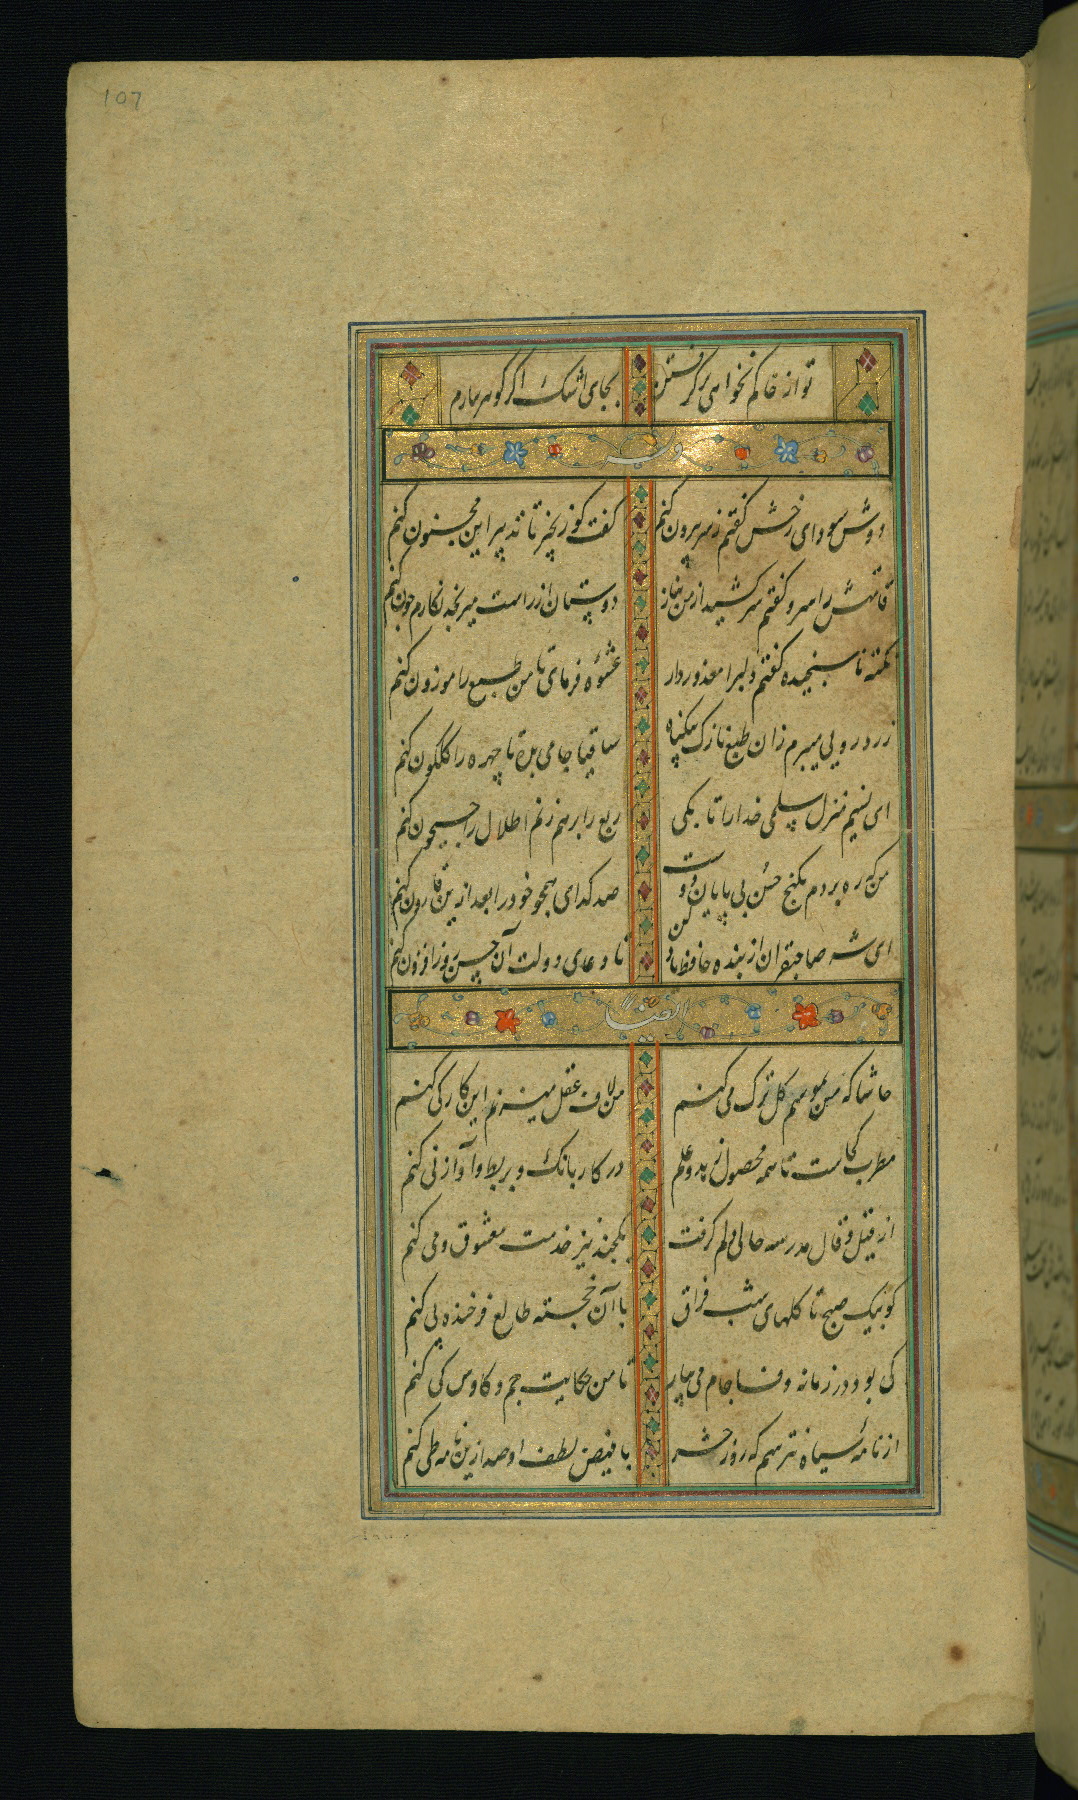 107
تو از خاکم نخواهی برگرفتن بجای اشک اگر گوهر ببارم
وله
دوش سودای رخش گفتم ز سر بیرون کنم گفت کو زنجیر تا تدبیر این مجنون کنم
قامتش را سرو گفتم سر کشید از من بناز دوستان از راست میرنجد نکارم چون کنم
نکته ناسنجیده گفتم دلبرا معذور دار عشوه فرمای تا من طبع را موزون کنم
زرد رویی میبرم زان طبع نازک بیکناه ساقیا جامی بده تا چهره را کلکون کنم
ای نسیم منزل سلمی خدا را تا بکی ربع را بر هم زنم اطلال را جیحون کنم
من که ره بردم بکنج حسن بی پایان دوست صد کدای همچو خود را بعد ازین قارون کنم
ای شه صاحبقران از بنده حافظ یاد کن تا دعای دولت آن حسن روز افزون کنم
ایضا
حاشا که من بموسم کل ترک می کنم من لاف عقل میزنم این کار کی کنم
مطرب کجاست تا همه محصول زهد و علم در کار بانک و بربط و آواز نی کنم
از قیل و قال مدرسه حالی دلم کرفت یکچند نیز خدمت معشوق و می کنم
کو پیک صبح تا کلهای شب فراق با آن خجسته طالع فرخنده پی کنم
کی بود در زمانه وفا جام می بیار تا من حکایت جم و کاوس کی کنم
از نامه سیاه نترسم که روز حشر با فیض لطف او صد ازین نامه طی کنم